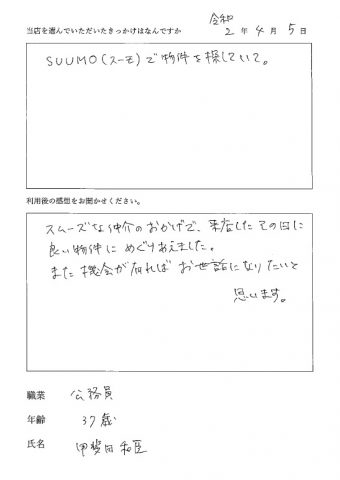 令和
当店を選んでいただいたきっかけはなんですか 2年4月5日
SUUMO(スーモ)で物件を探していて。
利用後の感想をお聞かせください。
スムーズな仲介のおかげで、来店したその日に
良い物件にめぐりあえました。
また機会が有ればお世話になりたいと
思います。
職業 公務員
年齢 37歳
氏名 甲斐田和臣